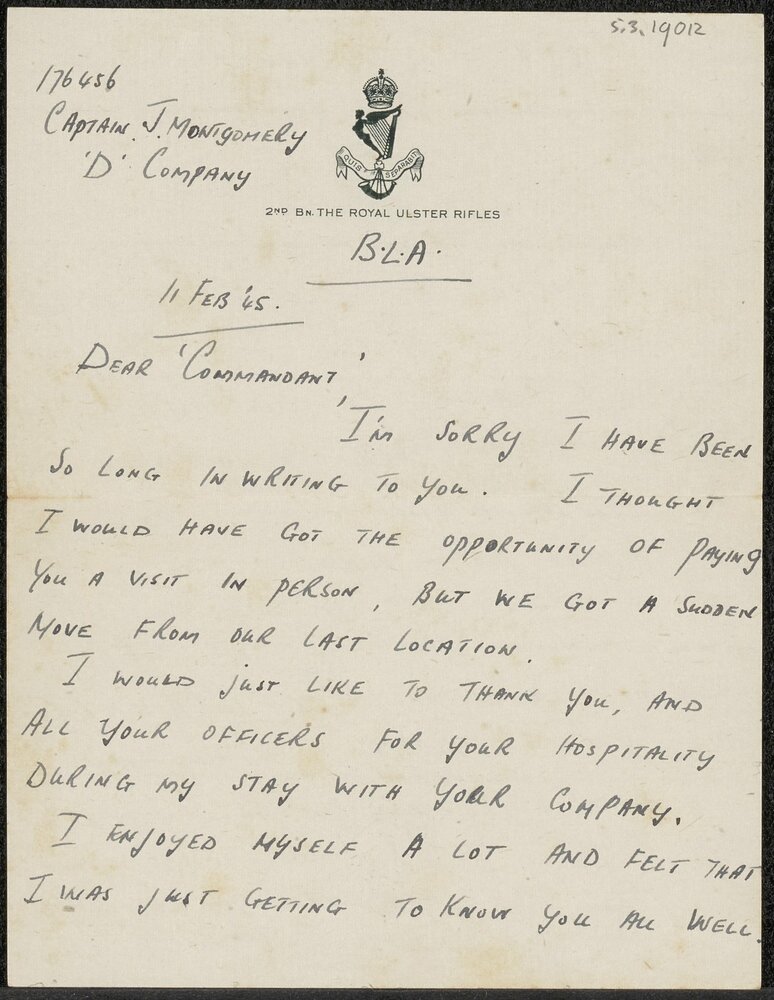 5.3.19012
176456
CAPTAIN. J. MONTGOMERY
'D' COMPANY
QUIS SEPARABIT
2ND BN. THE ROYAL ULSTER RIFLES
B.L.A.
11 FEB '45.
DEAR 'COMMANDANT',
I'M SORRY I HAVE BEEN
SO LONG IN WRITING TO YOU. I THOUGHT
I WOULD HAVE GOT THE OPPORTUNITY OF PAYING
YOU A VISIT IN PERSON, BUT WE GOT A SUDDEN
MOVE FROM OUR LAST LOCATION.
I WOULD JUST LIKE TO THANK YOU, AND
ALL YOUR OFFICERS FOR YOUR HOSPITALITY
DURING MY STAY WITH YOUR COMPANY.
I ENJOYED MYSELF A LOT AND FELT THAT
I WAS JUST GETTING TO KNOW YOU ALL WELL.